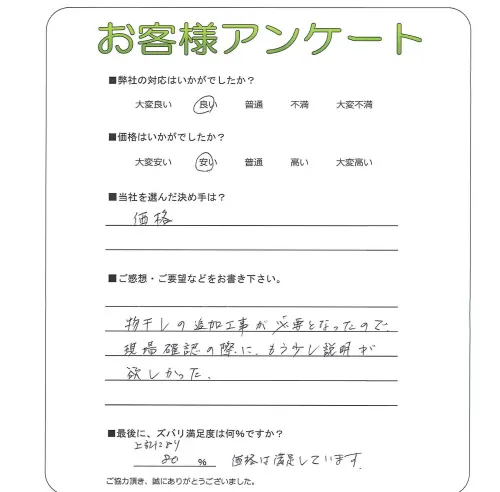 お客様アンケート
■弊社の対応はいかがでしたか？
大変良い 良い 普通 不満 大変不満
■価格はいかがでしたか？
大変安い 安い 普通 高い 大変高い
■当社を選んだ決め手は？
価格
■ご感想・ご要望などをお書き下さい。
物干しの追加工事が必要となったので、
現場確認の際に、もう少し説明が
欲しかった。
■最後に、ズバリ満足度は何％ですか？
上記により
80 % 価格は満足しています。
ご協力頂き、誠にありがとうございました。